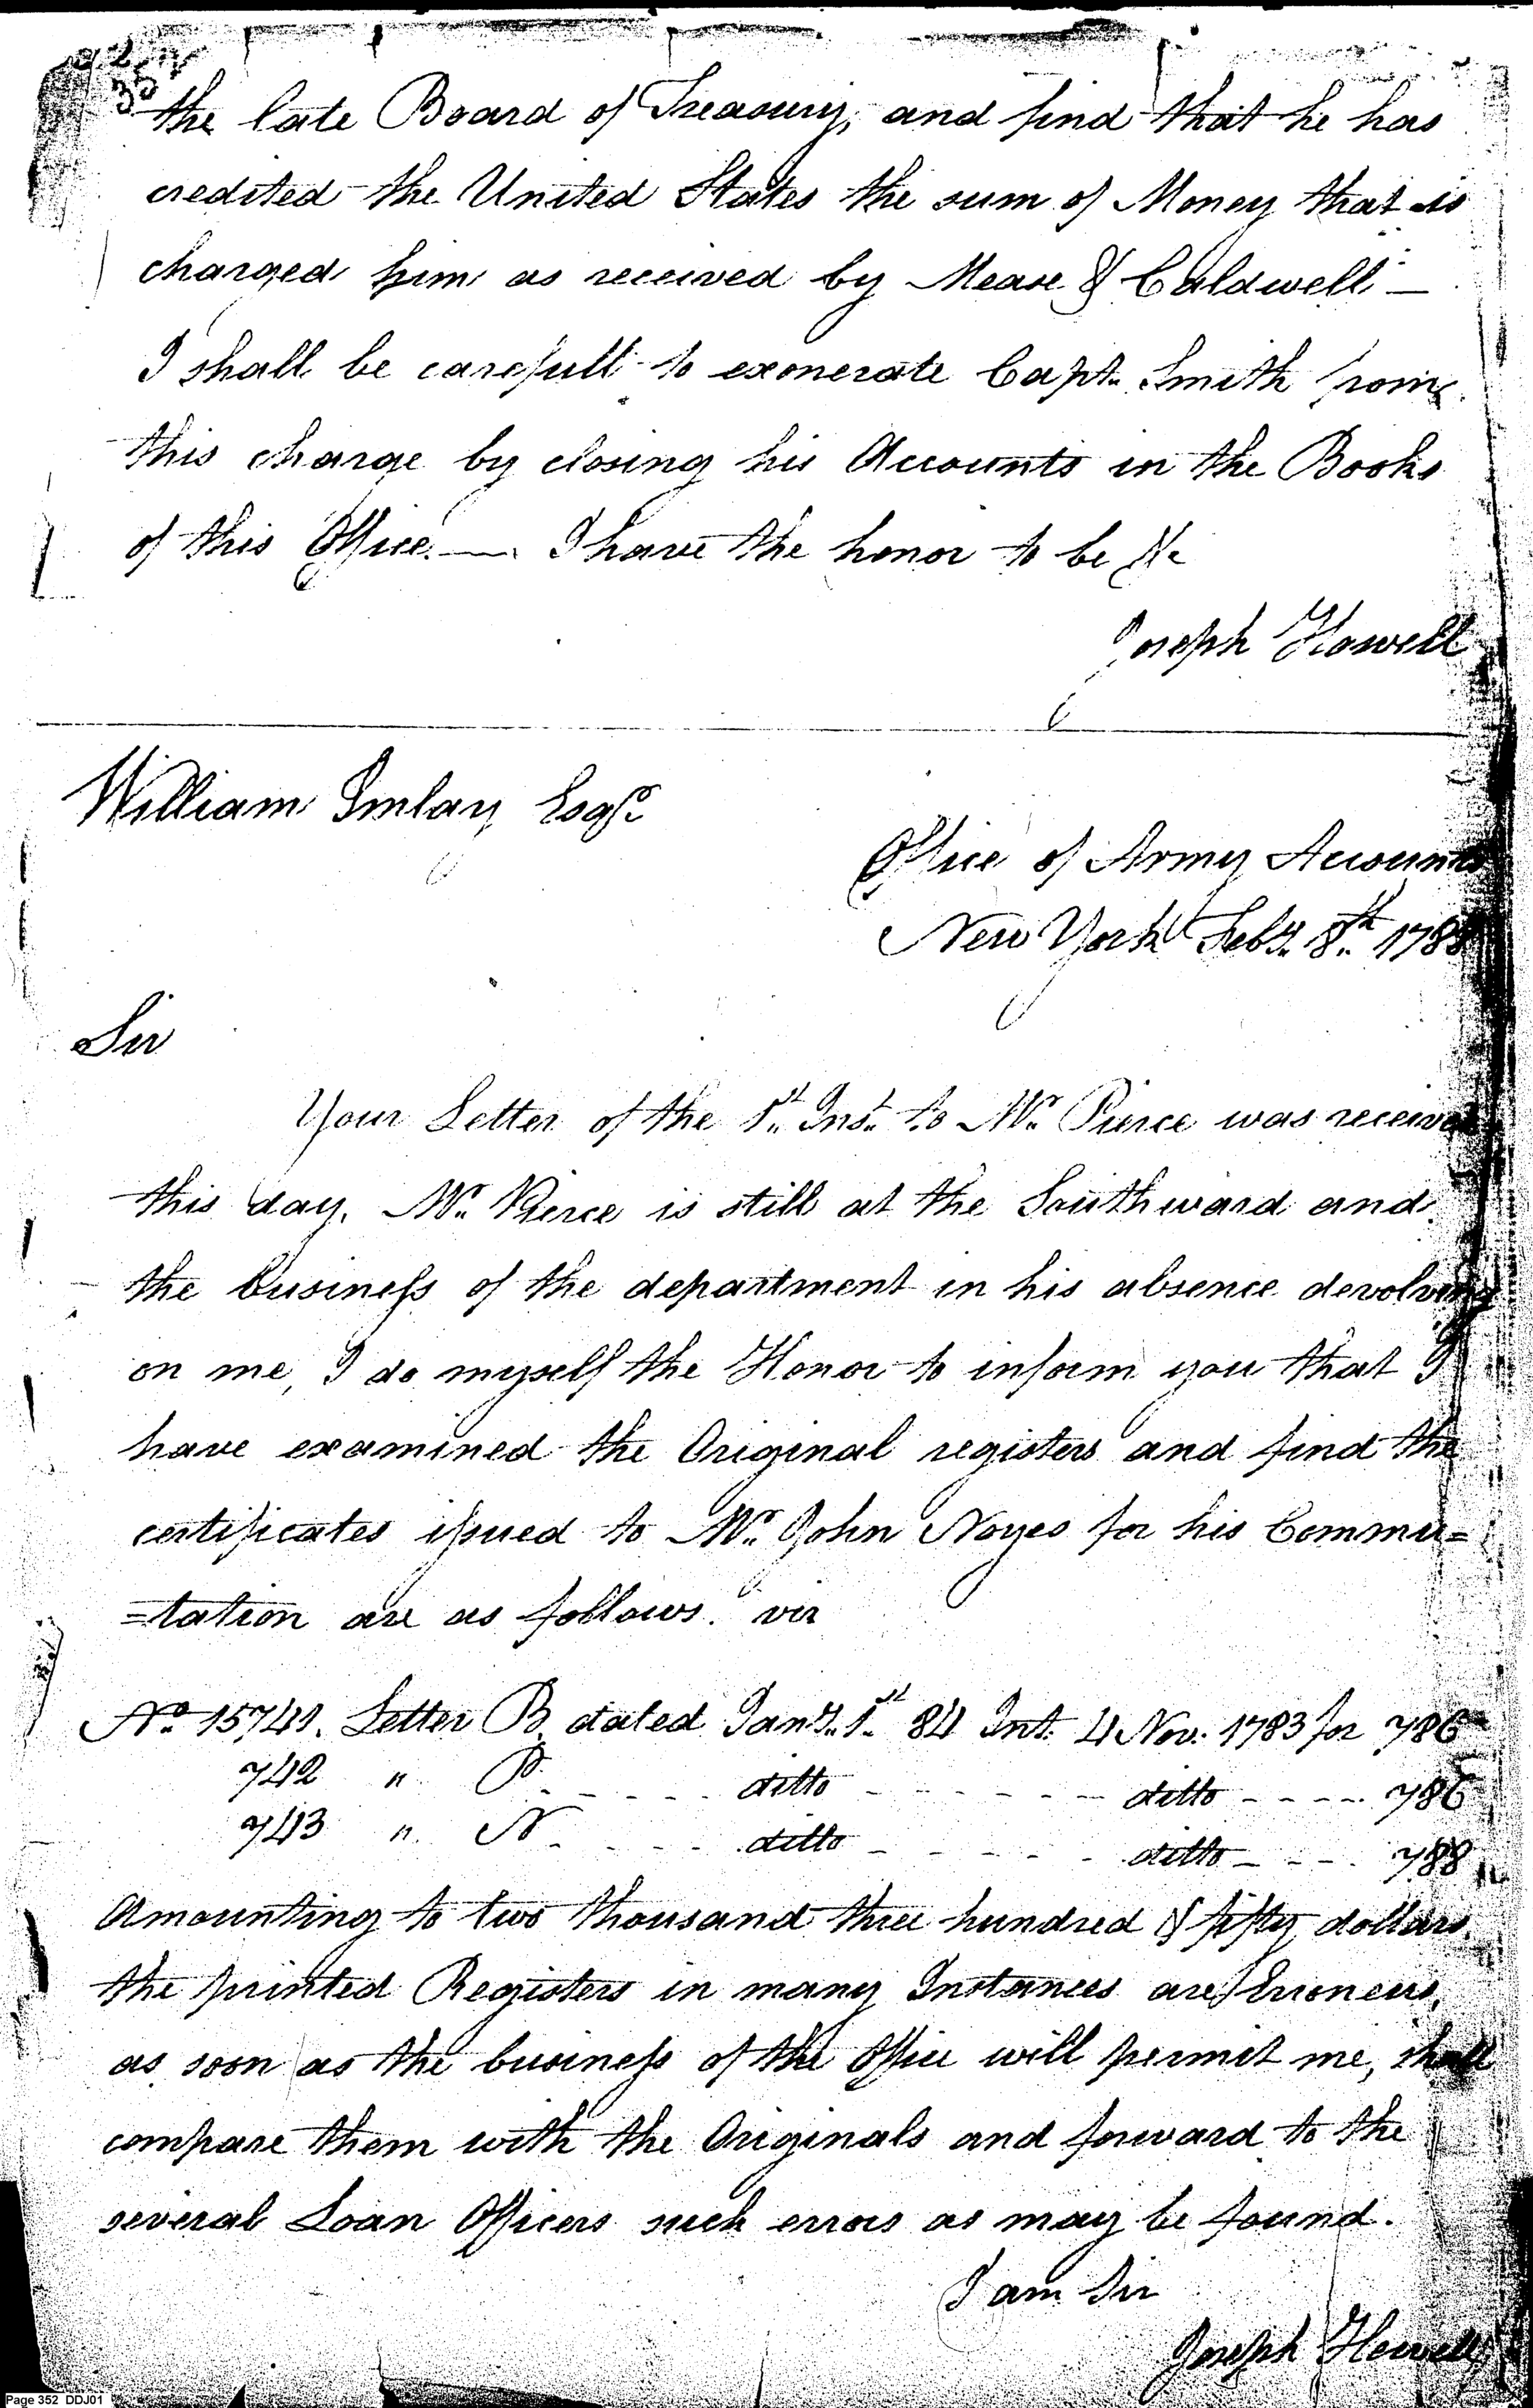 the late Board of Treasury, and find that he has
credited the United States the sum of Money that is
charged him as received by Mease & Caldwell —
I shall be carefull to exonerate Capt. Smith from
this charge by closing his Accounts in the Books
of this Office. — I have the honor to be &c
Joseph Howell
William Imlay Esqr.
Office of Army Accounts
New York Feby. 8th 1788
Sir
Your Letter of the 1st Inst. to Mr. Pierce was received
this day, Mr. Pierce is still at the Southward and
the business of the department in his absence devolving
on me, I do myself the Honor to inform you that I
have examined the Original registers and find the
certificates issued to Mr. John Noyes for his Commu=
=tation are as follows. viz
No. 15741. Letter B, dated Jany. 1st 84 Int. 4 Nov. 1783 for 786
742 " P. - - - - - ditto - - - - - - ditto - - - - 786
743 " N. - - - - ditto - - - - - ditto - - - 788
Amounting to two thousand three hundred & fifty dollars.
the printed Registers in many Instances are Erroneus,
as soon as the business of the Office will permit me, shall
compare them with the Originals and forward to the
several Loan Officers such errors as may be found.
I am Sir
Joseph Howell
Page 352 DDJ01